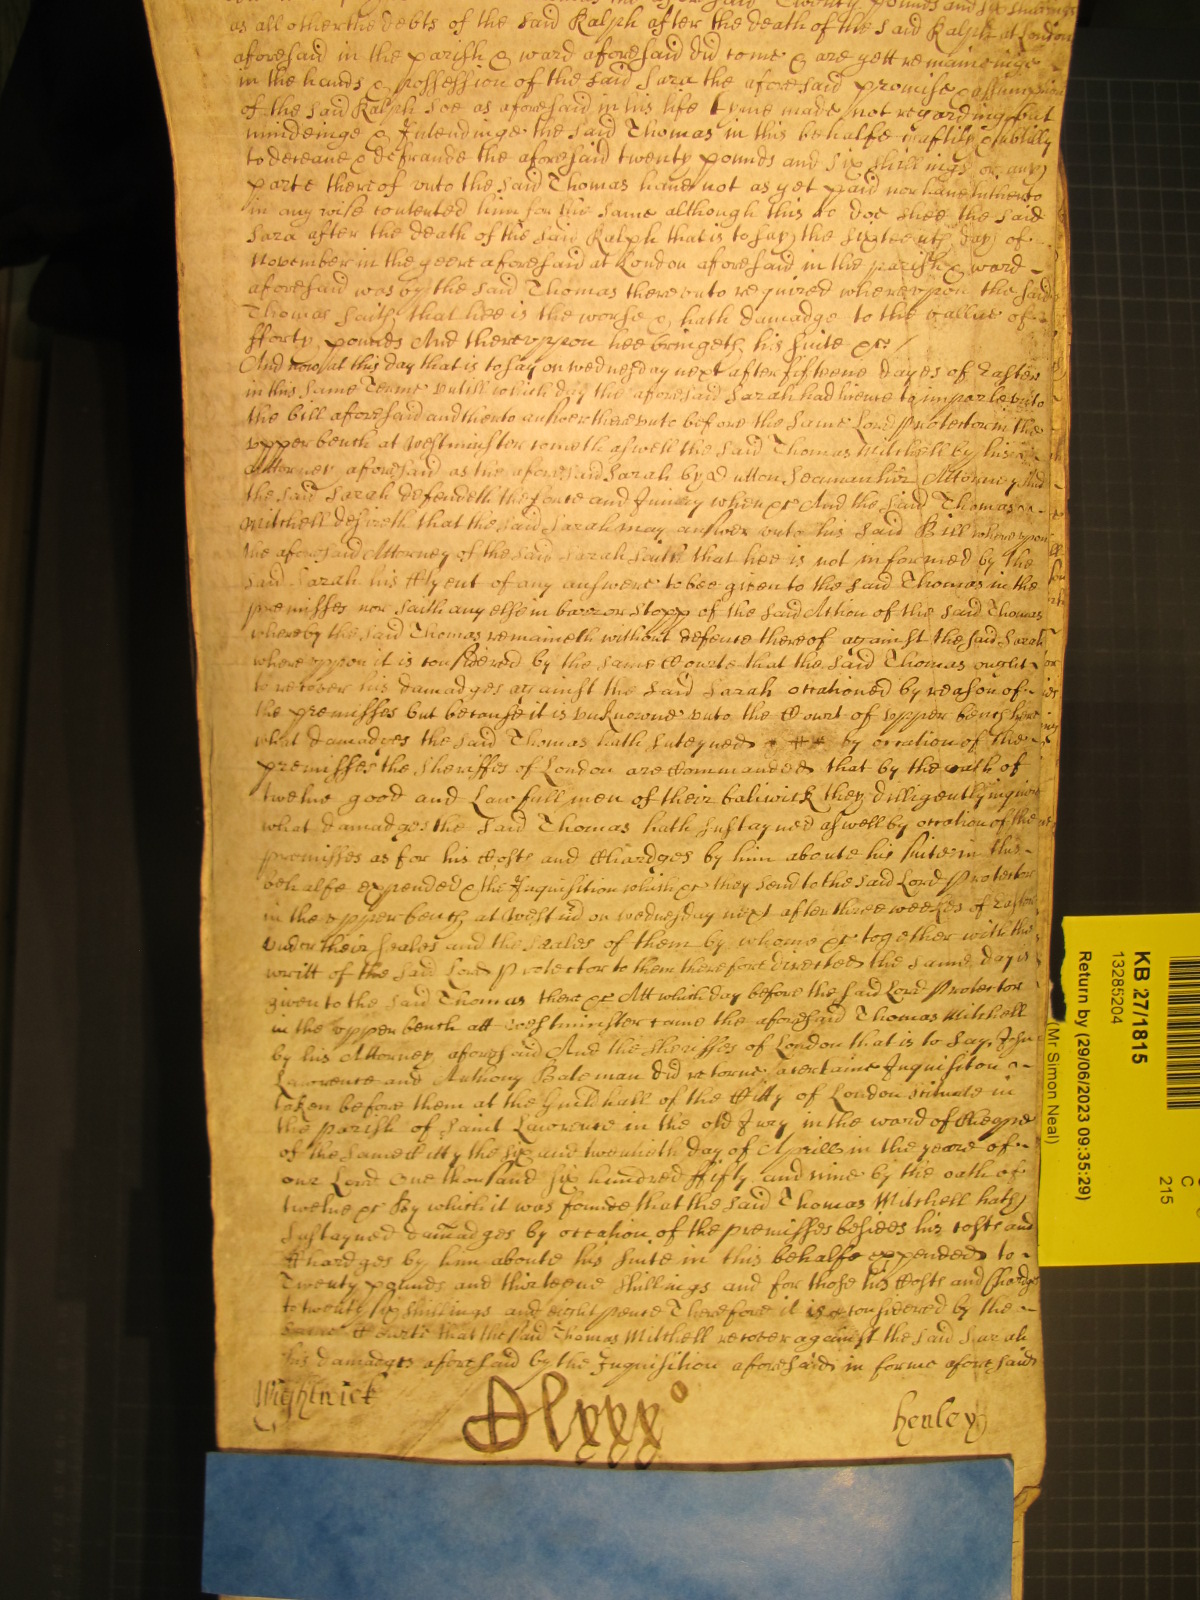 aforesaid Twenty pounds and six shillings
as all other the debts of the said Ralph after the death of the said Ralph at London
aforesaid in the parish & ward aforesaid did come & are yett remaineinge
in the hands & possession of the said Sara the aforesaid promise & assumption
of the said Ralph soe as aforesaid in his life tyme made not regarding but
mindeinge & Intendinge the said Thomas in this behalfe craftily & subtilly
to deceave & defraude the aforesaid twenty pounds and six shillings or any
parte thereof unto the said Thomas have not as yet paid nor have hitherto
in any wise contented him for the same although this to doe shee the said
Sara after the death of the said Ralph that is to say the sixteenth day of
November in the yeere aforesaid at London aforesaid in the parish & ward
aforesaid was by the said Thomas thereunto required whereupon the said
Thomas saith that hee is the worse & hath damadge to the vallue of
fforty pounds And thereuppon hee bringeth his suite &c
And now at this day that is to say on wednesday next after fifteene dayes of Easter
in this same Terme untill which day the aforesaid Sarah had licence to imparle unto
the bill aforesaid and then to answer thereunto before the same Lord Protector in the
upper bench at Westminster cometh aswell the said Thomas Mitchell by his
Attorney aforesaid as the aforesaid Sarah by Dutton Seaman her Attorney And
the said Sarah defendeth the force and Iniury when &c And the said Thomas
Mitchell desireth that the said Sarah may answer unto his said Bill whereupon
the aforesaid Attorney of the said Sarah saith that hee is not informed by the
said Sarah his Clyent of any answere to bee given to the said Thomas in the
premisses nor saith any else in barr or stopp of the said Action of the said Thomas
whereby the said Thomas remaineth without defence thereof against the said Sarah
whereuppon it is considered by the same Courte that the said Thomas ought
to recover his damadges against the said Sarah occationed by reason of
the premisses but because it is unknowne unto the Court of upper bench here
what damadges the said Thomas hath susteyned by occation of the
premisses the Sheriffes of London are Commanded that by the oath of
twelve good and Lawfull men of their baliwick they dilligently inquire
what damadges the said Thomas hath sustayned aswell by occation of the
premisses as for his Costs and Chardges by him aboute his suite in this
behalfe expended & the Inquisition which &c they send to the said Lord Protector
in the upper bench at Westmr on wednesday next after three weekes of Easter
under their seales and the seales of them by whome &c together with the
writt of the said Lord Protector to them therefore directed the same day is
given to the said Thomas there &c Att which day before the said Lord Protector
in the upper bench att Westminster came the aforesaid Thomas Mitchell
by his Attorney aforesaid And the Sheriffes of London that is to say John
Lawrence and Anthony Bateman did retorne a certaine Inquisition
taken before them at the Guildhall of the Citty of London scituate in
the parish of Saint Lawrence in the old Jury in the ward of Cheape
of the same Citty the six and twentieth day of Aprill in the yeare of
our Lord One thousand six hundred fifty and nine by the oath of
twelve &c By which it was founde that the said Thomas Mitchell hath
sustayned damadges by occation of the premisses besides his costs and
Chardges by him aboute his suite in this behalfe expended to
Twenty pounds and thirteene shillings and for those his Costs and Chardges
to twenty six shillings and eight pence Therefore it is considered by the
same Courte that the said Thomas Mitchell recover against the said Sarah
his damadges aforesaid by the Inquisition aforesaid in forme aforesaid
Wightwick
Dlxxxo
henley
KB 27/1815
13285204
Return by (29/06/2023 09:35:29)
(Mr Simon Neal)
C
215